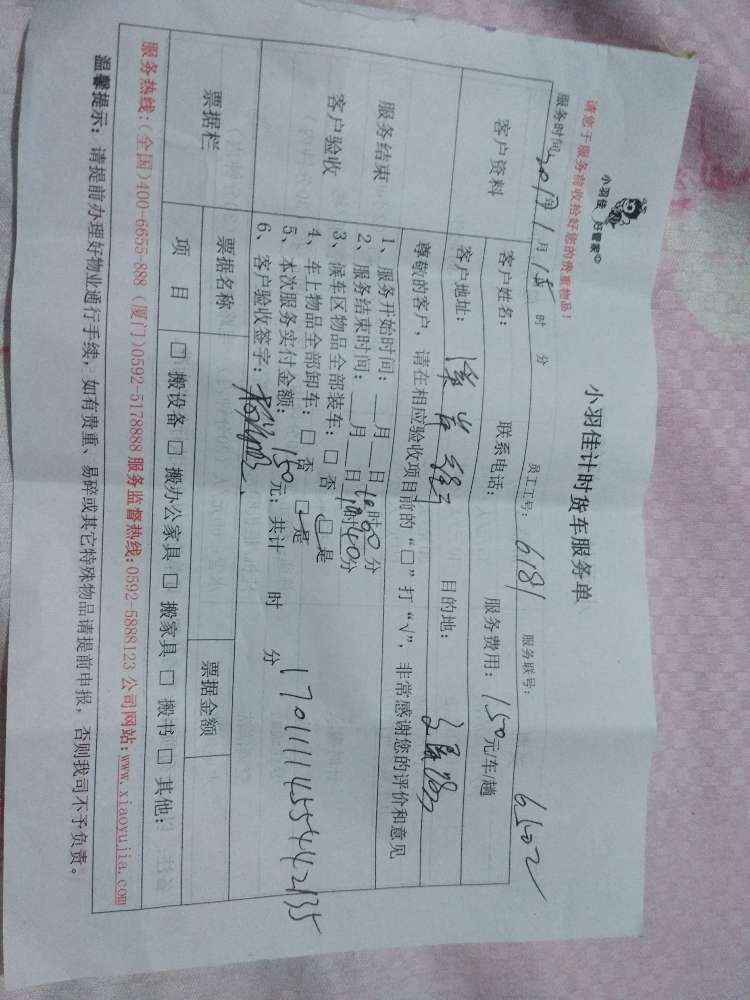 小羽佳 好管家
请您于服务前收拾好您的贵重物品!
小羽佳计时货车服务单
服务时间: 年1月15 时 分 员工工号: 6181 服务联号: 6502
客户资料
客户姓名: 联系电话: 服务费用: 150元/车/趟
客户地址: 目的地:
尊敬的客户，请在相应验收项目前的“□”打“√”，非常感谢您的评价和意见
服务结束
客户验收
1、服务开始时间: __月__日 时00分
2、服务结束时间: __月__日 时40分
3、候车区物品全部装车: □ 否 □ 是
4、车上物品全部卸车: □ 否 □ 是
5、本次服务实付金额: 150元; 共计 时 分
6、客户验收签字:
1701111455442135
票据栏
票据名称 票据金额
项 目 □ 搬设备 □ 搬办公家具 □ 搬家具 □ 搬书 □ 其他:
服务热线:(全国)400-6655-888 (厦门)0592-5178888 服务监督热线:0592-5888123 公司网站:www.xiaoyujia.com
温馨提示: 请提前办理好物业通行手续，如有贵重、易碎或其它特殊物品请提前申报，否则我司不予负责。